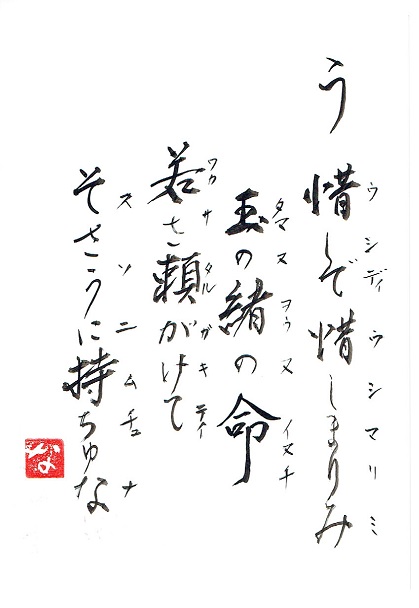 う
惜しで惜しまりみ
ウシディウシマリミ
玉の緒の命
タマヌヲゥヌイヌチ
若さ頼がけて
ワカサタルガキティ
そさうに持ちゆな
スソニムチュナ
な